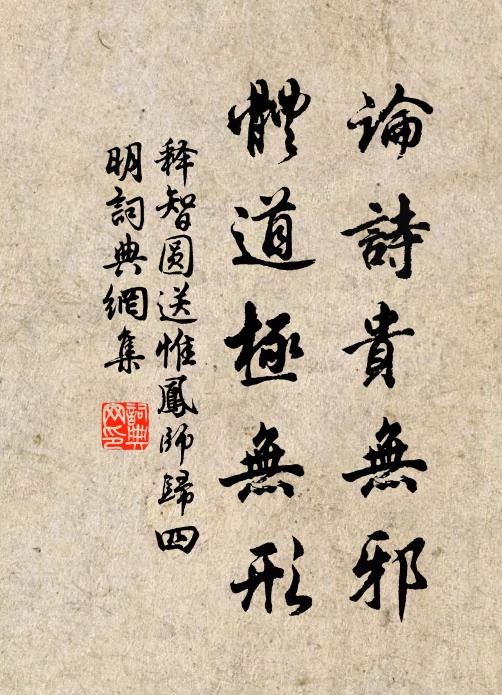 論詩貴無邪
體道極無形
释智圆送惟鳳师歸四
明詞典網集
詞典
网印